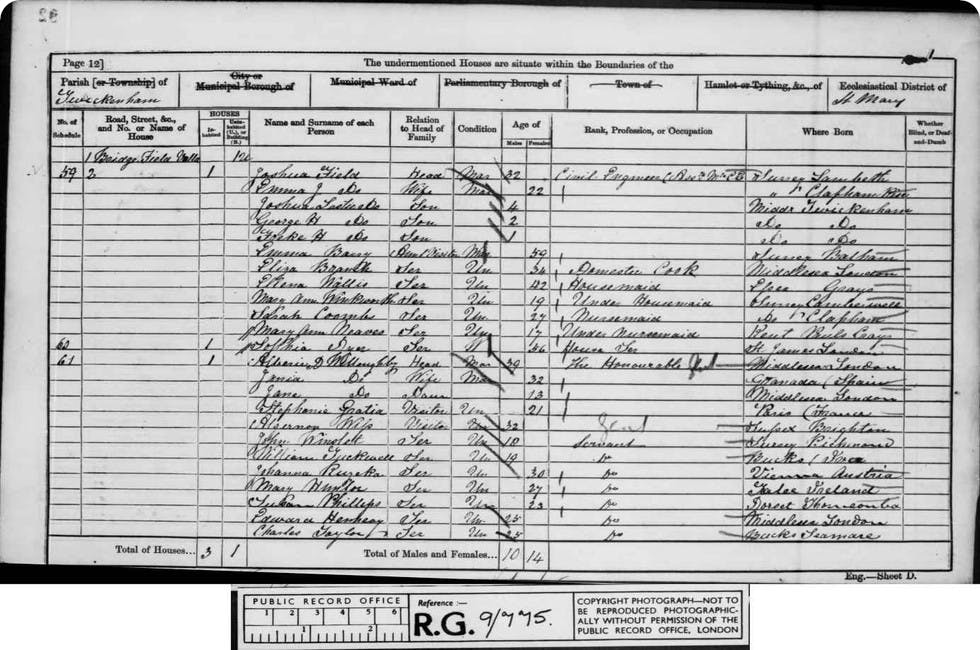 Page 12]
The undermentioned Houses are situate within the Boundaries of the
Parish [or Township] of
Twickenham
City or
Municipal Borough of
Municipal Ward of
Parliamentary Borough of
Town of
Hamlet or Tything, &c., of
Ecclesiastical District of
St Mary
No. of Schedule
Road, Street, &c., and No. or Name of House
HOUSES
In-habited
Unin-habited (U.), or Building (B.)
Name and Surname of each Person
Relation to Head of Family
Condition
Age of
Males
Females
Rank, Profession, or Occupation
Where Born
Whether Blind, or Deaf-and-Dumb
1 Bridge Field Villa 1U
59 2 1 Joshua Field Head Mar 32 Civil Engineer Surrey Lambeth
Emma J Do Wife Mar 22 " Clapham
Joshua Do Son 4 Middx Twickenham
George H Do Son 2 Do Do
H Do Son Do Do
Emma Barry Visitor 59 Surrey Balham
Eliza Ser Un 34 Domestic Cook Middlesex London
Ellena Wallis Ser Un 42 Housemaid Essex Grays
Mary Ann Winkworth Ser Un 19 Under Housemaid Surrey Camberwell
Sarah Coombs Ser Un 27 Nursemaid Do Clapham
Mary Ann Neaves Ser Un 17 Under Nursemaid Kent Cray
60 1 Sophia Ser W 56 House Ser St James London
61 1 D Willoughby Head Mar 39 The Honourable Middlesex London
Do Wife Mar 32 Granada (Spain
Jane Do Daur 13 Middlesex London
Stephanie Gratia Visitor Un 21 Paris (France
Algernon Visitor Un 32 Sussex Brighton
John Ser Un 18 Servant Surrey Richmond
William Tuckwell Ser Un 19 Do Bucks
Johanna Ser Un 30 Do Vienna Austria
Mary Ser Un 27 Do Ireland
Susan Phillips Ser Un 23 Do Dorset
Edward Ser Un 25 Do Middlesex London
Charles Taylor Ser Un 25 Do Bucks
Total of Houses... 3 1
Total of Males and Females... 10 14
Eng.—Sheet D.
PUBLIC RECORD OFFICE
1 2 3 4 5 6
1 2
Reference :—
R.G. 9/775.
COPYRIGHT PHOTOGRAPH—NOT TO
BE REPRODUCED PHOTOGRAPHIC-
ALLY WITHOUT PERMISSION OF THE
PUBLIC RECORD OFFICE, LONDON